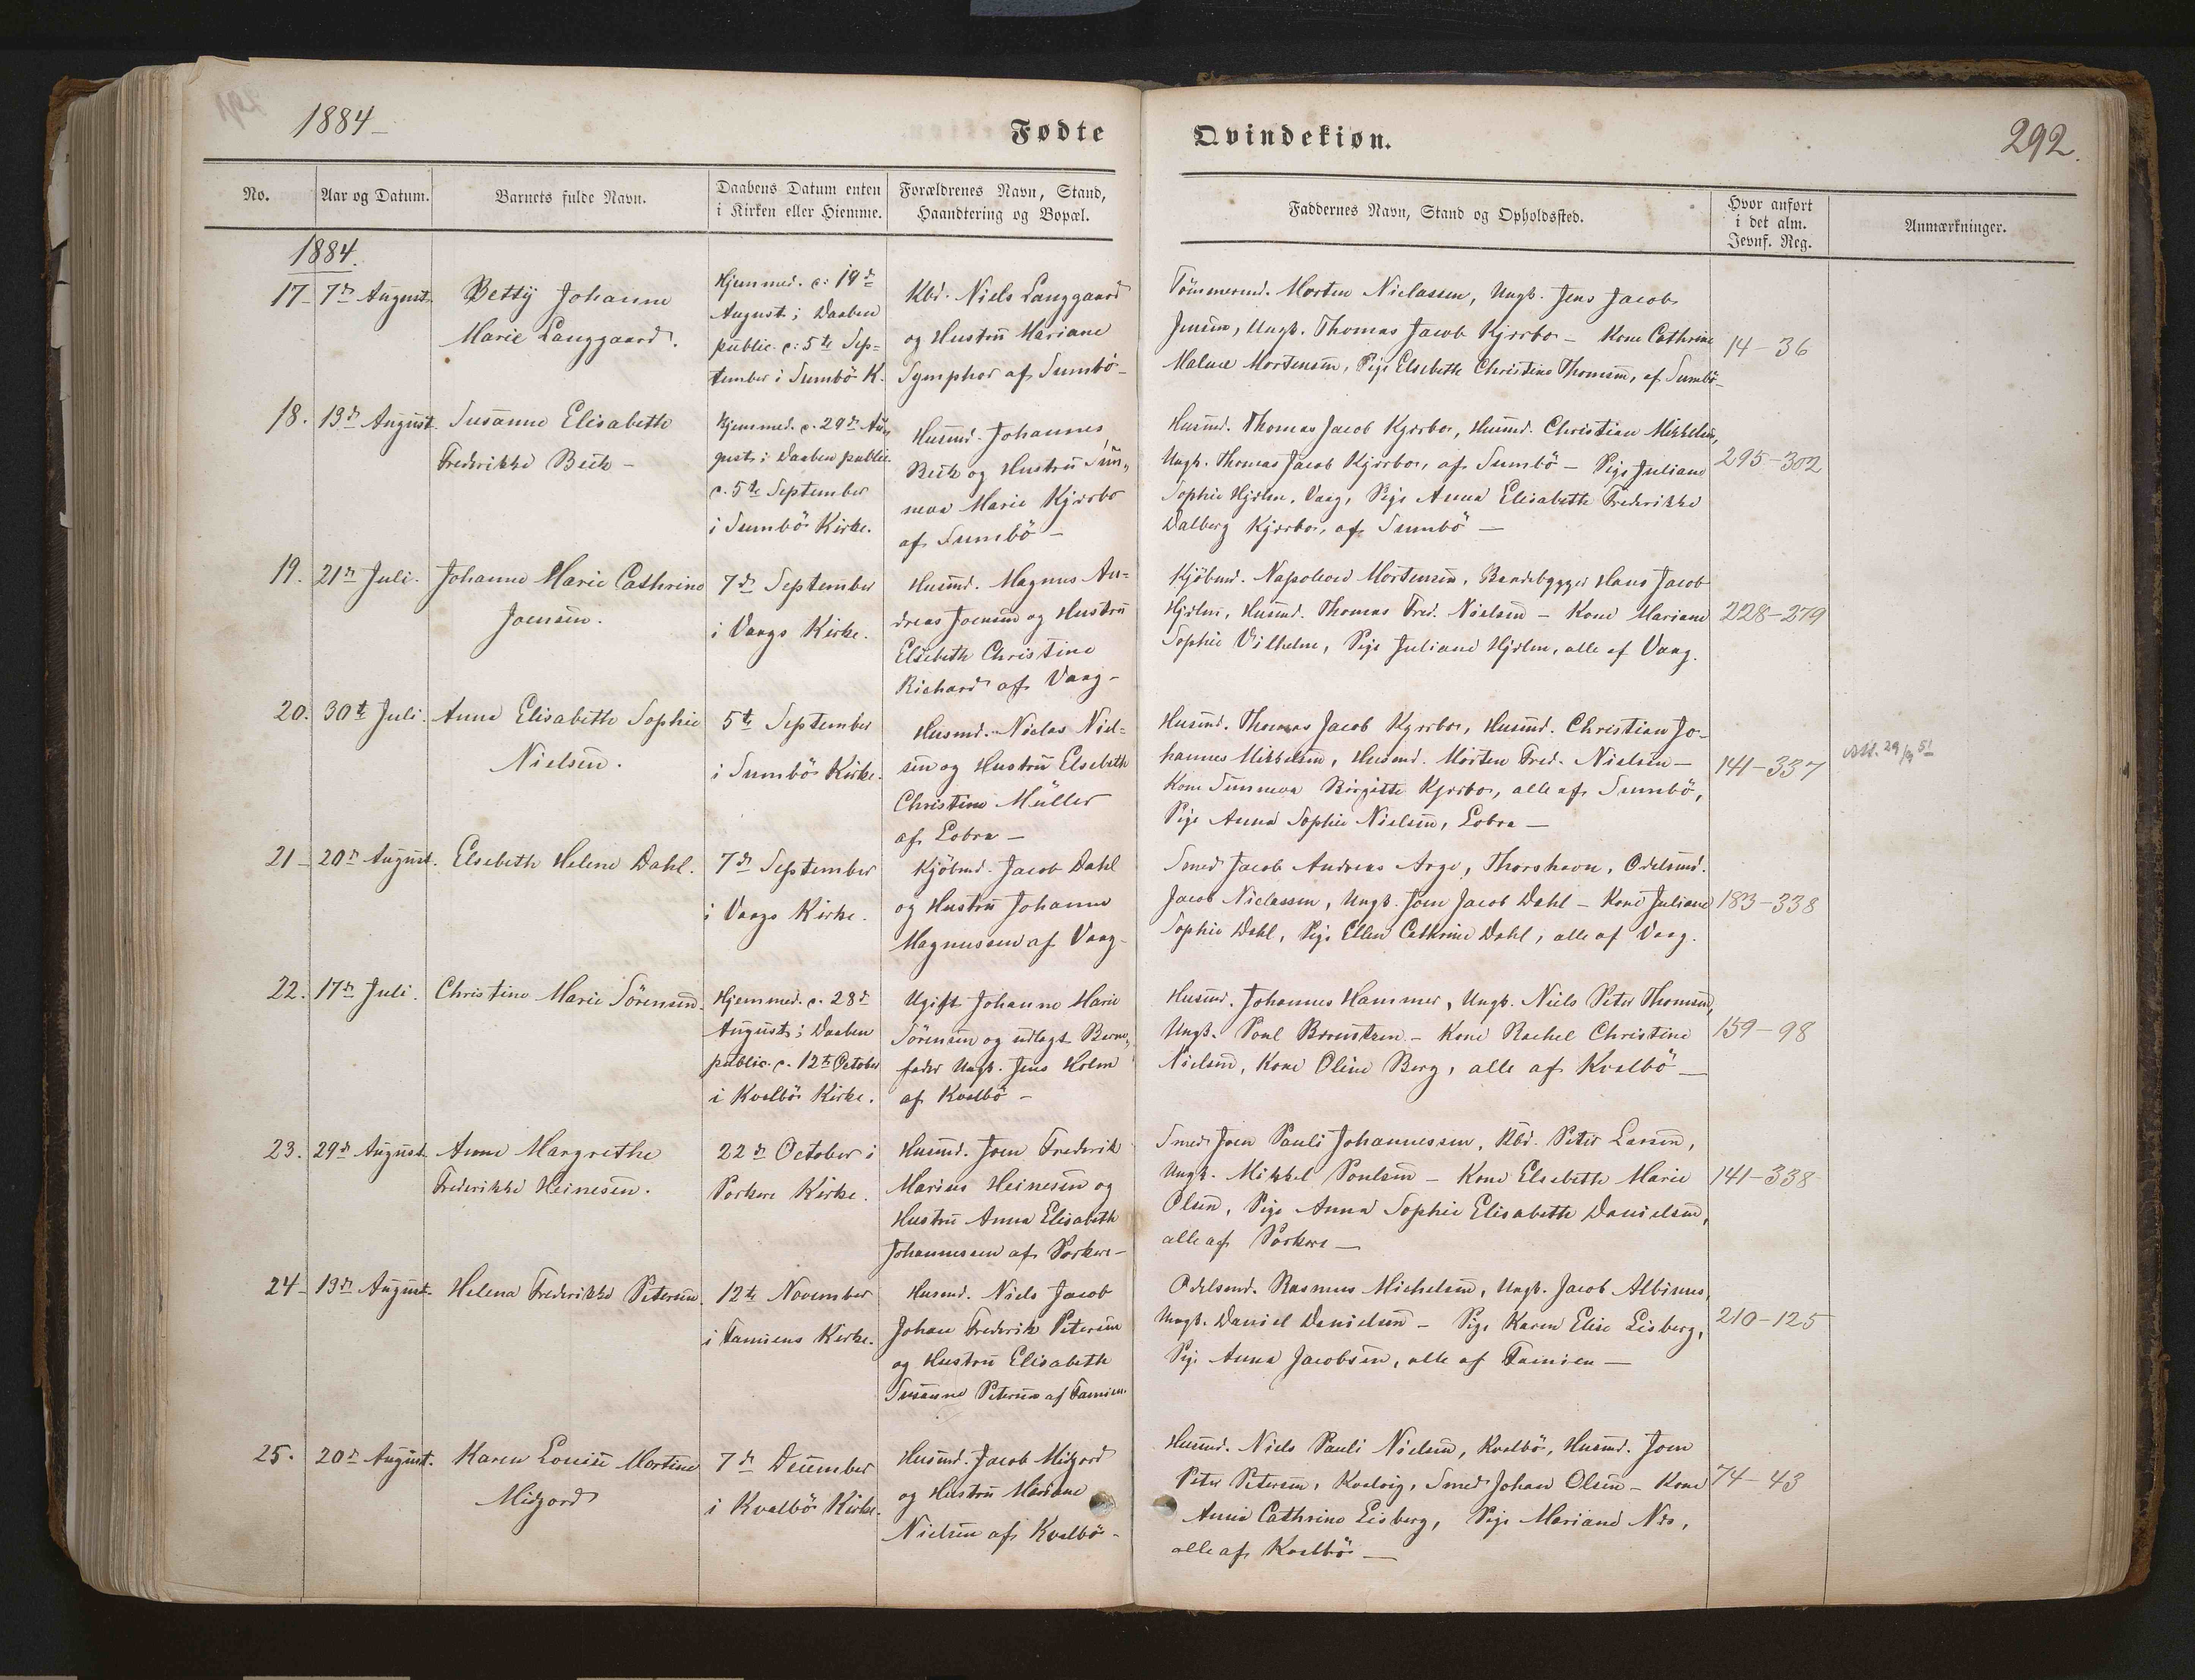 1884
Fødte
Qvindekiøn.
292.
No.
Aar og Datum.
Barnets fulde Navn.
Daabens Datum enten
i Kirken eller Hiemme.
Forældrenes Navn, Stand,
Haandtering og Bopæl.
Faddernes Navn, Stand og Opholdssted.
Hvor anført
i det alm.
Jevnf. Reg.
Anmærkninger.
1884.
17 7de August
Betty Johanne
Marie Langgaard.
Hjemmed. d: 19d
August; Daaben
public. d: 5te Sep=
tember i Sumbö K.
Kbd. Niels Langgaard
og Hustru Mariane
Symphor af Sumbö
Tömmermd. Morten Niclassen, Ungk. Jens Jacob
Jensen, Ungk. Thomas Jacob Kjærbo - Kone Cathrine
Malene Mortensen, Pige Elsebeth Christine Thomsen, af Sumbö
14-36
18. 13de August
Susanne Elisabeth
Frederikke Beck -
Hjemmed. d. 29de Au=
gust; Daaben public.
d. 5te September
i Sumbö Kirke.
Husmd. Johannes
Beck og Hustru Sun=
neva Marie Kjærbo
af Sumbö -
Husmd. Thomas Jacob Kjærbo, Husmd. Christian Mikkelsen,
Ungk. Thomas Jacob Kjærbo, af Sumbö - Pige Juliane
Sophie Hjelm, Vaag, Pige Anna Elisabeth Frederikke
Dalberg Kjærbo, af Sumbö -
295-302
19. 21de Juli.
Johanne Marie Cathrine
Joensen.
7de September
i Vaags Kirke.
Husmd. Magnus An=
dreas Joensen og Hustru
Elsebeth Christine
Richard af Vaag -
Kjöbmd. Napoleon Mortensen, Baadebygger Hans Jacob
Hjelm, Husmd. Thomas Fred. Nielsen - Kone Mariane
Sophie Vilhelm, Pige Juliane Hjelm, alle af Vaag.
228-279
20. 30te Juli.
Anne Elisabeth Sophie
Nielsen.
5te September
i Sumbö Kirke.
Husmd. Niclas Niel=
sen og Hustru Elsebeth
Christine Müller
af Lobra -
Husmd. Thomas Jacob Kjærbo, Husmd. Christian Jo-
hannes Mikkelsen, Husmd. Morten Fred. Nielsen -
Kone Sunneva Birgitte Kjærbo, alle af Sumbö,
Pige Anna Sophie Nielsen, Lobra -
141-337
Att. 29/9 51
21 20de August.
Elsebeth Helene Dahl.
7de September
i Vaags Kirke.
Kjöbmd. Jacob Dahl
og Hustru Johanne
Magnussen af Vaag -
Smed Jacob Andreas Arge, Thorshavn, Odelsmd.
Jacob Niclassen, Ungk. Joen Jacob Dahl - Kone Juliane
Sophie Dahl, Pige Ellen Cathrine Dahl, alle af Vaag.
183-338
22. 17de Juli.
Christine Marie Sörensen.
Hjemmed. d. 28d
August; Daaben
public. d. 12te October
i Kvalbö Kirke.
Ugift Johanne Marie
Sörensen og udlagt Barne=
fader Ungk. Jens Holm
af Kvalbö -
Husmd. Johannes Hammer, Ungk. Niels Peter Thomsen,
Ungk. Poul Berentzen - Kone Rachel Christine
Nielsen, Kone Oline Berg, alle af Kvalbö -
159-98
23. 29de August
Anne Margrethe
Frederikke Heinesen.
22de October i
Porkere Kirke.
Husmd. Joen Frederik
Marius Heinesen og
Hustru Anna Elisabeth
Johannessen af Porkere -
Smed Joen Pauli Johannessen, Kbd. Peter Larsen,
Ungk. Mikkel Poulsen - Kone Elsebeth Marie
Olsen, Pige Anna Sophie Elisabeth Danielsen,
alle af Porkere -
141-338
24 13de August.
Helena Frederikke Petersen.
12te November
i Famiens Kirke.
Husmd. Niels Jacob
Johan Frederik Petersen
og Hustru Elisabeth
Susanne Petersen af Famien.
Odelsmd. Rasmus Michelsen, Ungk. Jacob Albinus,
Ungk. Daniel Danielsen - Pige Karen Elise Lisberg,
Pige Anna Jacobsen, alle af Famien -
210-125
25. 20de August.
Karen Louise Martine
Midjord
7de December
i Kvalbö Kirke.
Husmd. Jacob Midjord
og Hustru Mariane
Nielsen af Kvalbö -
Husmd. Niels Pauli Nielsen, Kvalbö, Husmd. Joen
Peter Petersen, Kvalvig, Smed Johan Olsen - Kone
Anna Cathrine Lisberg, Pige Mariane
alle af Kvalbö -
74-43